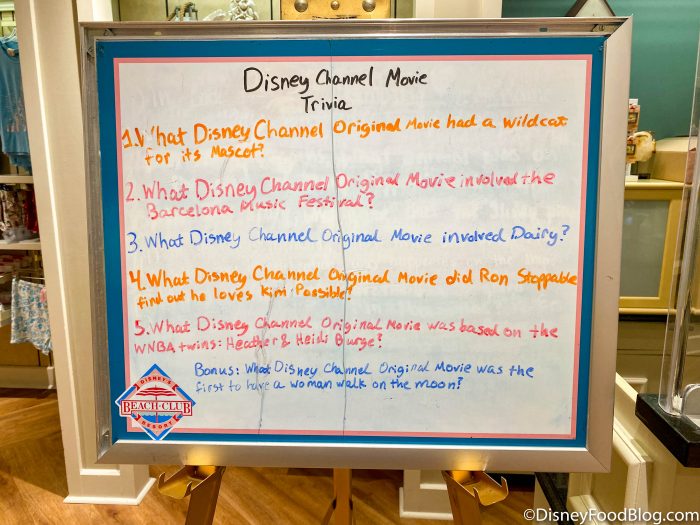 Disney Channel Movie
Trivia
1. What Disney Channel Original Movie had a wildcat
for its Mascot?
2. What Disney Channel Original Movie involved the
Barcelona Music Festival?
3. What Disney Channel Original Movie involved Dairy?
4. What Disney Channel Original Movie did Ron Stoppable
find out he loves Kim Possible?
5. What Disney Channel Original Movie was based on the
WNBA twins: Heather & Heidi Burge?
Bonus: What Disney Channel Original Movie was the
first to have a woman walk on the moon?
DISNEY'S
BEACH CLUB
RESORT
©DisneyFoodBlog.com